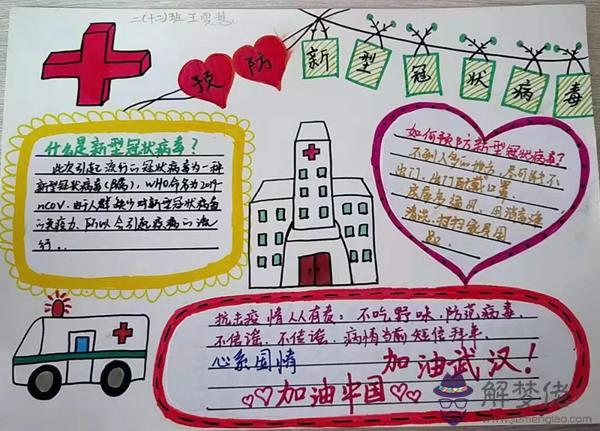 二(十二)班王雪慧
预防新型冠状病毒
什么是新型冠状病毒?
此次引起流行的冠状病毒为一种
新型冠状病毒(β属), WHO命名为2019-
nCOV. 由于人群缺少对新型冠状病毒
的免疫力, 所以会引起疾病的流
行。
如何预防新型冠状病毒?
不到人多的地方, 尽可能不
出门, 出门配戴口罩
通风, 用消毒液
清洗
抗击疫情人人有责: 不吃野味、防范病毒、
不信谣、不传谣、病情当前短信拜年
心系国情
加油武汉!
加油中国
解梦佬
www.jiemenglao.com